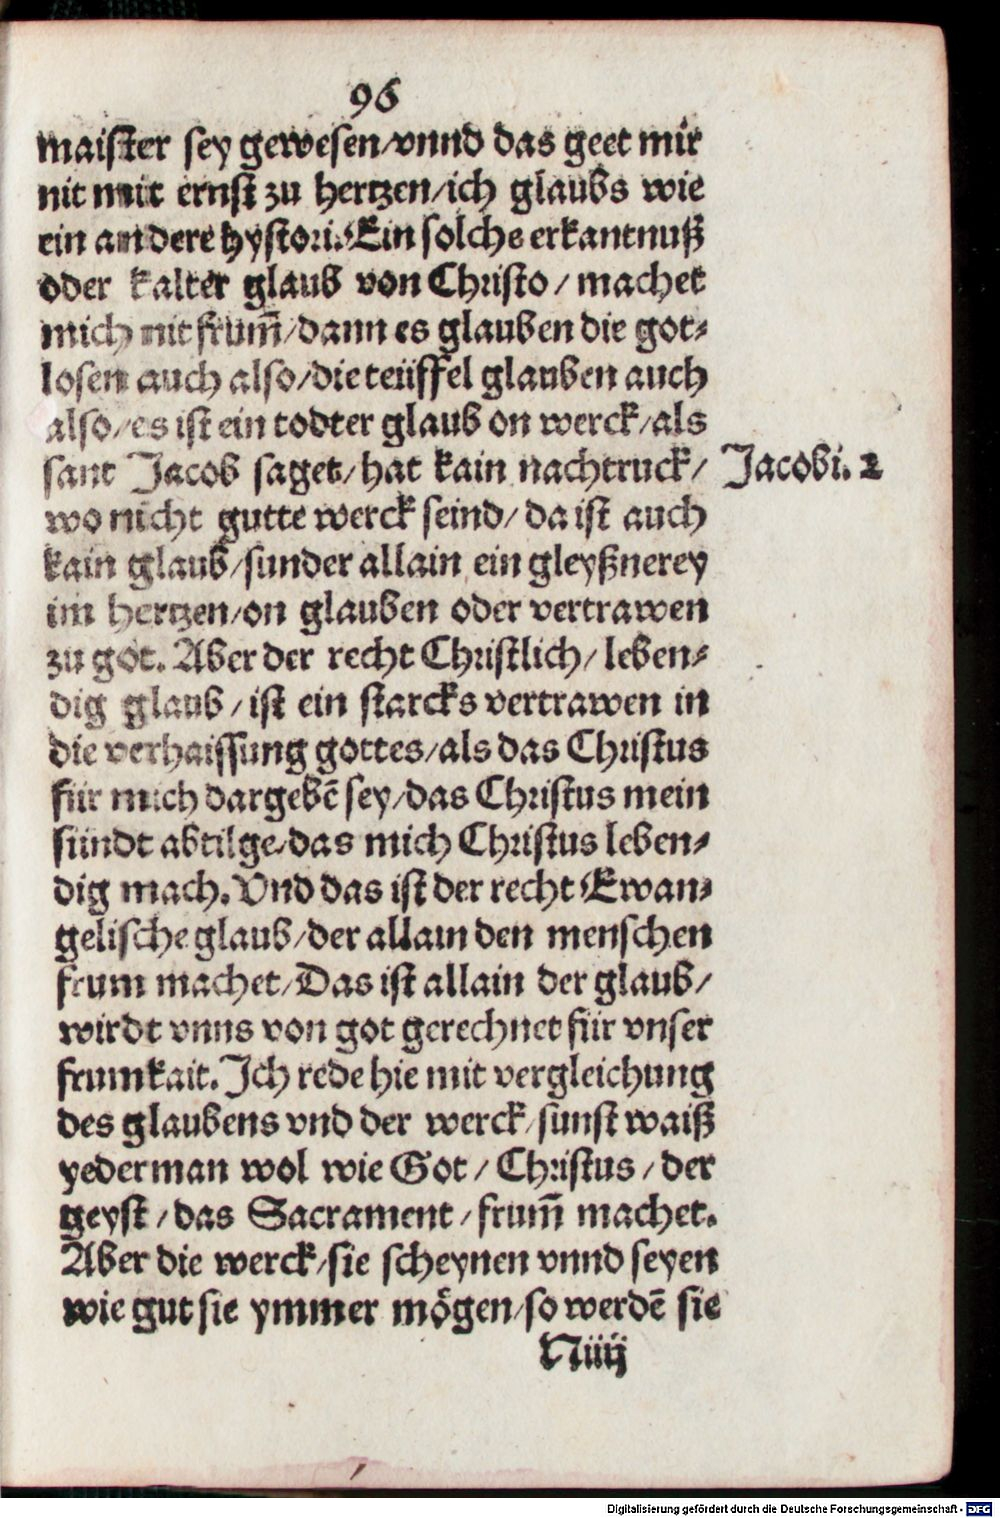 96
maister sey gewesen/vnnd das geet mir
nit mit ernst zu hertzen/ich glaubs wie
ein andere hystori. Ein solche erkantnuß
oder kalter glaub von Christo/machet
mich nit frum̃/dann es glauben die got⸗
losen auch also/die teüffel glauben auch
also/es ist ein todter glaub on werck/als
sant Jacob saget/hat kain nachtruck/
Jacobi. 2
wo nicht gutte werck seind/da ist auch
kain glaub/sunder allain ein gleyßnerey
im hertzen/on glauben oder vertrawen
zu got. Aber der recht Christlich/leben⸗
dig glaub/ist ein starcks vertrawen in
die verhaissung gottes/als das Christus
für mich dargebẽ sey/das Christus mein
sündt abtilge/das mich Christus leben⸗
dig mach. Vnd das ist der recht Ewan⸗
gelische glaub/der allain den menschen
frum machet/Das ist allain der glaub/
wirdt vnns von got gerechnet für vnser
frumkait. Ich rede hie mit vergleichung
des glaubens vnd der werck/sunst waiß
yederman wol wie Got/Christus/der
geyst/das Sacrament/frum̃ machet.
Aber die werck/sie scheynen vnnd seyen
wie gut sie ymmer mögen/so werdẽ sie
N iiij
Digitalisierung gefördert durch die Deutsche Forschungsgemeinschaft - DFG